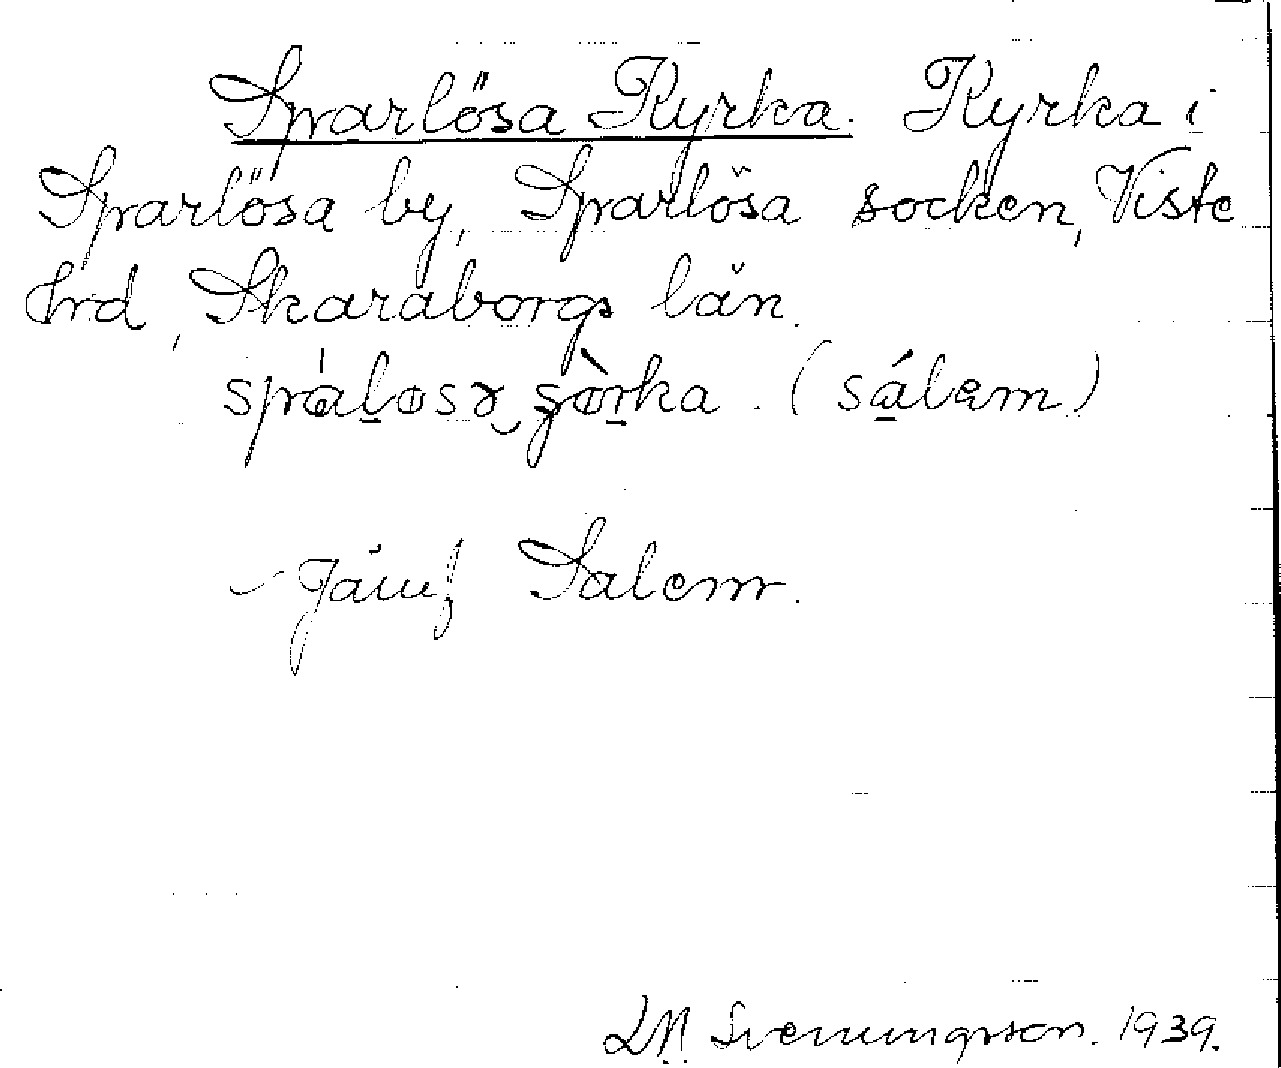 Sparlösa Kyrka. Kyrka i
Sparlösa by, Sparlösa socken, Viste
hrd, Skaraborgs län.
(sálem)
Jämf Salem.
Svenungsson. 1939.